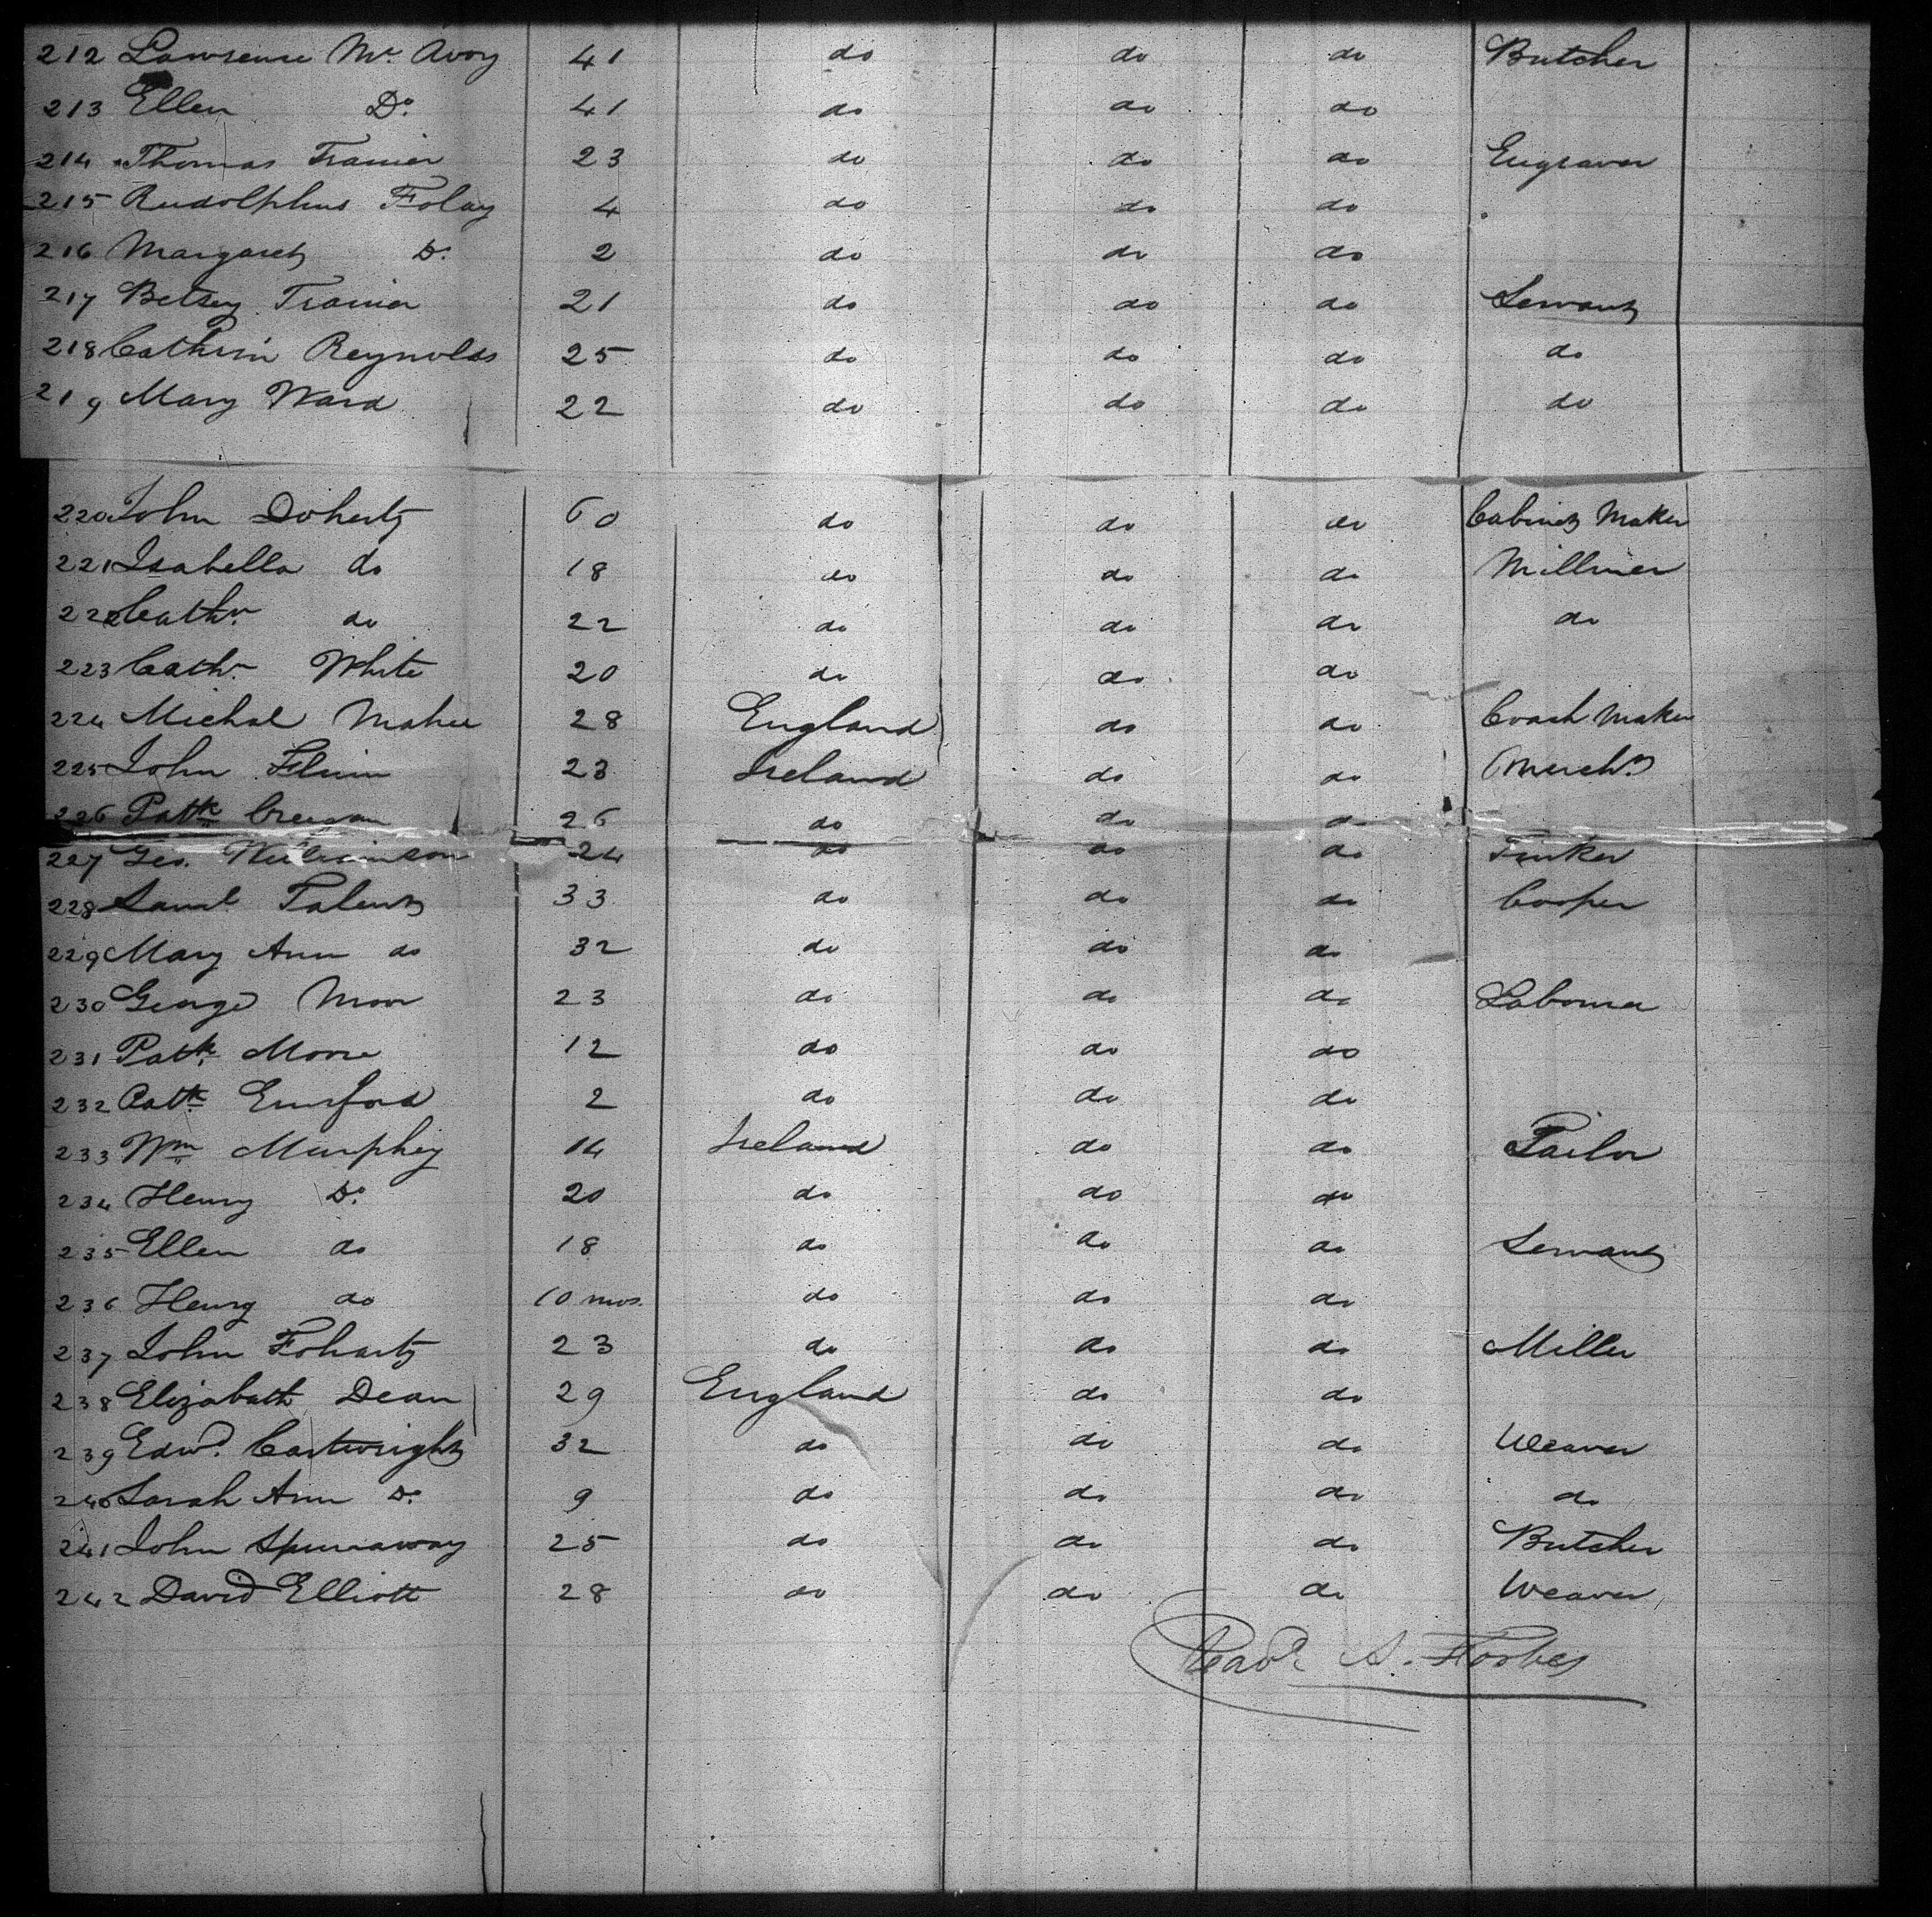 212 Lawrence Mc Avoy 41 do do do Butcher
213 Ellen Do 41 do do do
214 Thomas Trainer 23 do do do Engraver
215 Rudolphus Folay 4 do do do
216 Margaret Do 2 do do do
217 Betsey Trainer 21 do do do Servant
218 Cathrin Reynolds 25 do do do do
219 Mary Ward 22 do do do do
220 John Doherty 60 do do do Cabinet Maker
221 Isabella do 18 do do do Milliner
222 Cathn do 22 do do do do
223 Cathn White 20 do do do
224 Michal Maher 28 England do do Coach Maker
225 John Flinn 23 Ireland do do Mercht
226 Patk 26 do do do
227 Geo. Williamson 24 do do do
228 Saml Talent 33 do do do Cooper
229 Mary Ann do 32 do do do
230 George Moor 23 do do do Labourer
231 Patk Moore 12 do do do
232 Patk 2 do do do
233 Wm Murphey 14 Ireland do do Tailor
234 Henry Do 20 do do do
235 Ellen do 18 do do do Servant
236 Henry do 10 mos. do do do
237 John Foharty 23 do do do Miller
238 Elizabath Dean 29 England do do
239 Edwd. Cartwright 32 do do do Weaver
240 Sarah Ann Do 9 do do do do
241 John Spurraway 25 do do do Butcher
242 David Elliott 28 do do do Weaver
A. Forbes